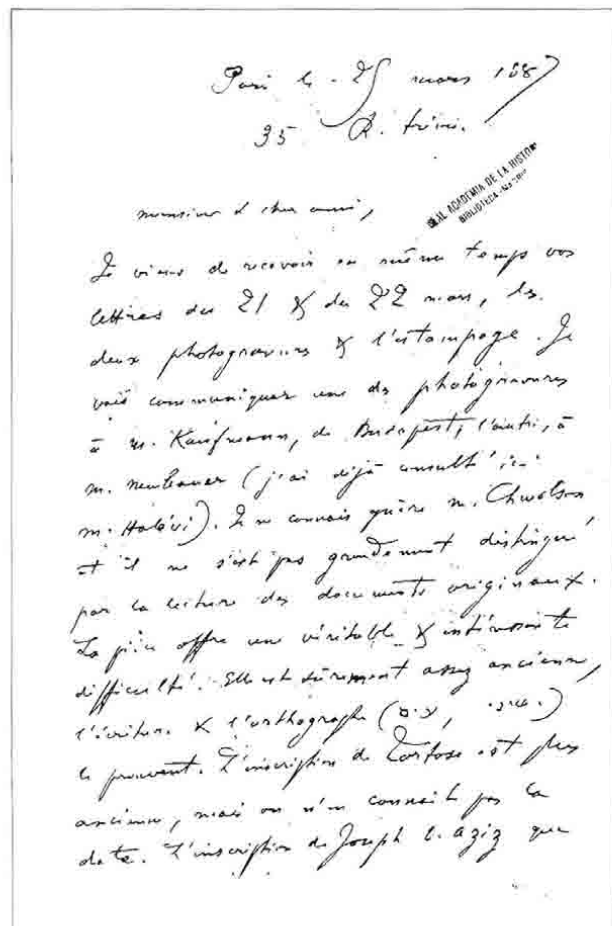 Paris le 25 mars 1887
35 R. Trévi.
REAL ACADEMIA DE LA HISTORIA
BIBLIOTECA
monsieur & cher ami,
Je viens de recevoir en même temps vos
lettres des 21 & des 22 mars, les
deux photogravures & l'estampage. Je
vais communiquer une des photogravures
à m. Kaufmann, de Budapest, l'autre, à
m. Neubauer (j'ai déjà consulté ici
m. Halévi). Je ne connais guère m. Chwolson
et il ne s'est pas grandement distingué
par la lecture des documents originaux.
La pièce offre une véritable & intéressante
difficulté. Elle est sûrement assez ancienne,
l'écriture & l'orthographe
le prouvent. L'inscription de Tortose est plus
ancienne, mais on n'en connait pas la
date. L'inscription de Joseph b. Aziz que